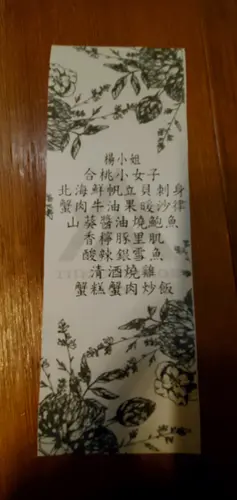 楊小姐
合桃小女子
北海鮮帆立貝刺身
蟹肉牛油果暖沙律
山葵醬油燒鮑魚
香檸豚里肌
酸辣銀雪魚
清酒燒雞
蟹糕蟹肉炒飯